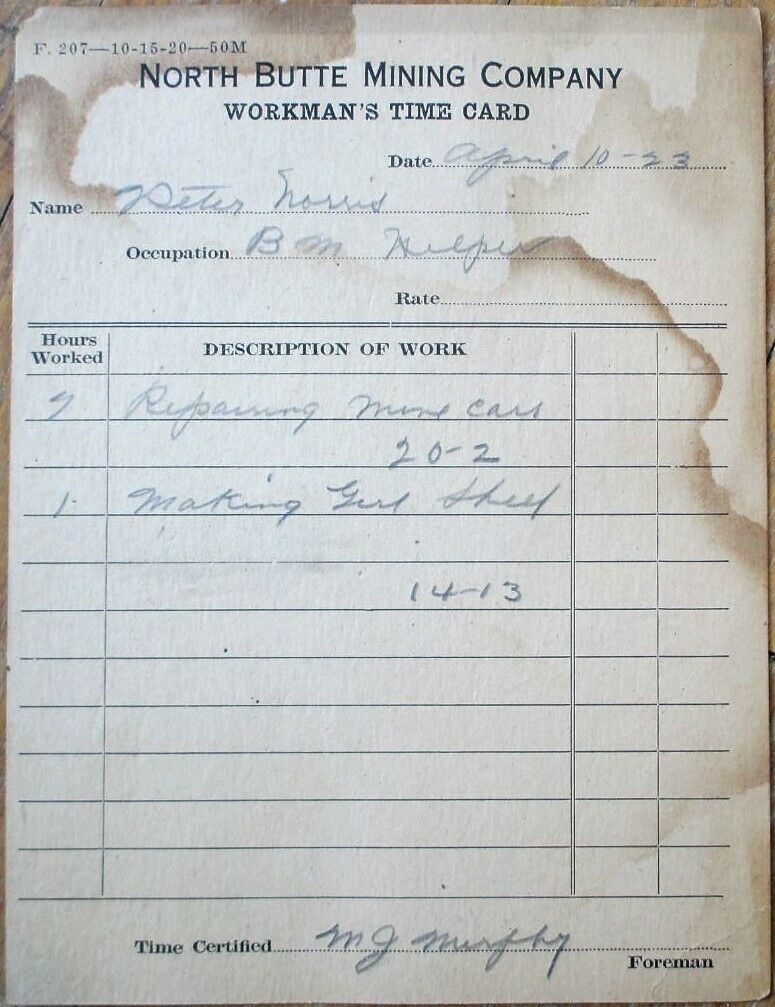 F. 207—10-15-20—50M
NORTH BUTTE MINING COMPANY
WORKMAN'S TIME CARD
Date April 10-23
Name Peter Norris
Occupation B M Helper
Rate
Hours Worked DESCRIPTION OF WORK
7 Repairing mine cars
20-2
1 Making Shelf
14-13
Time Certified M J Murphy
Foreman